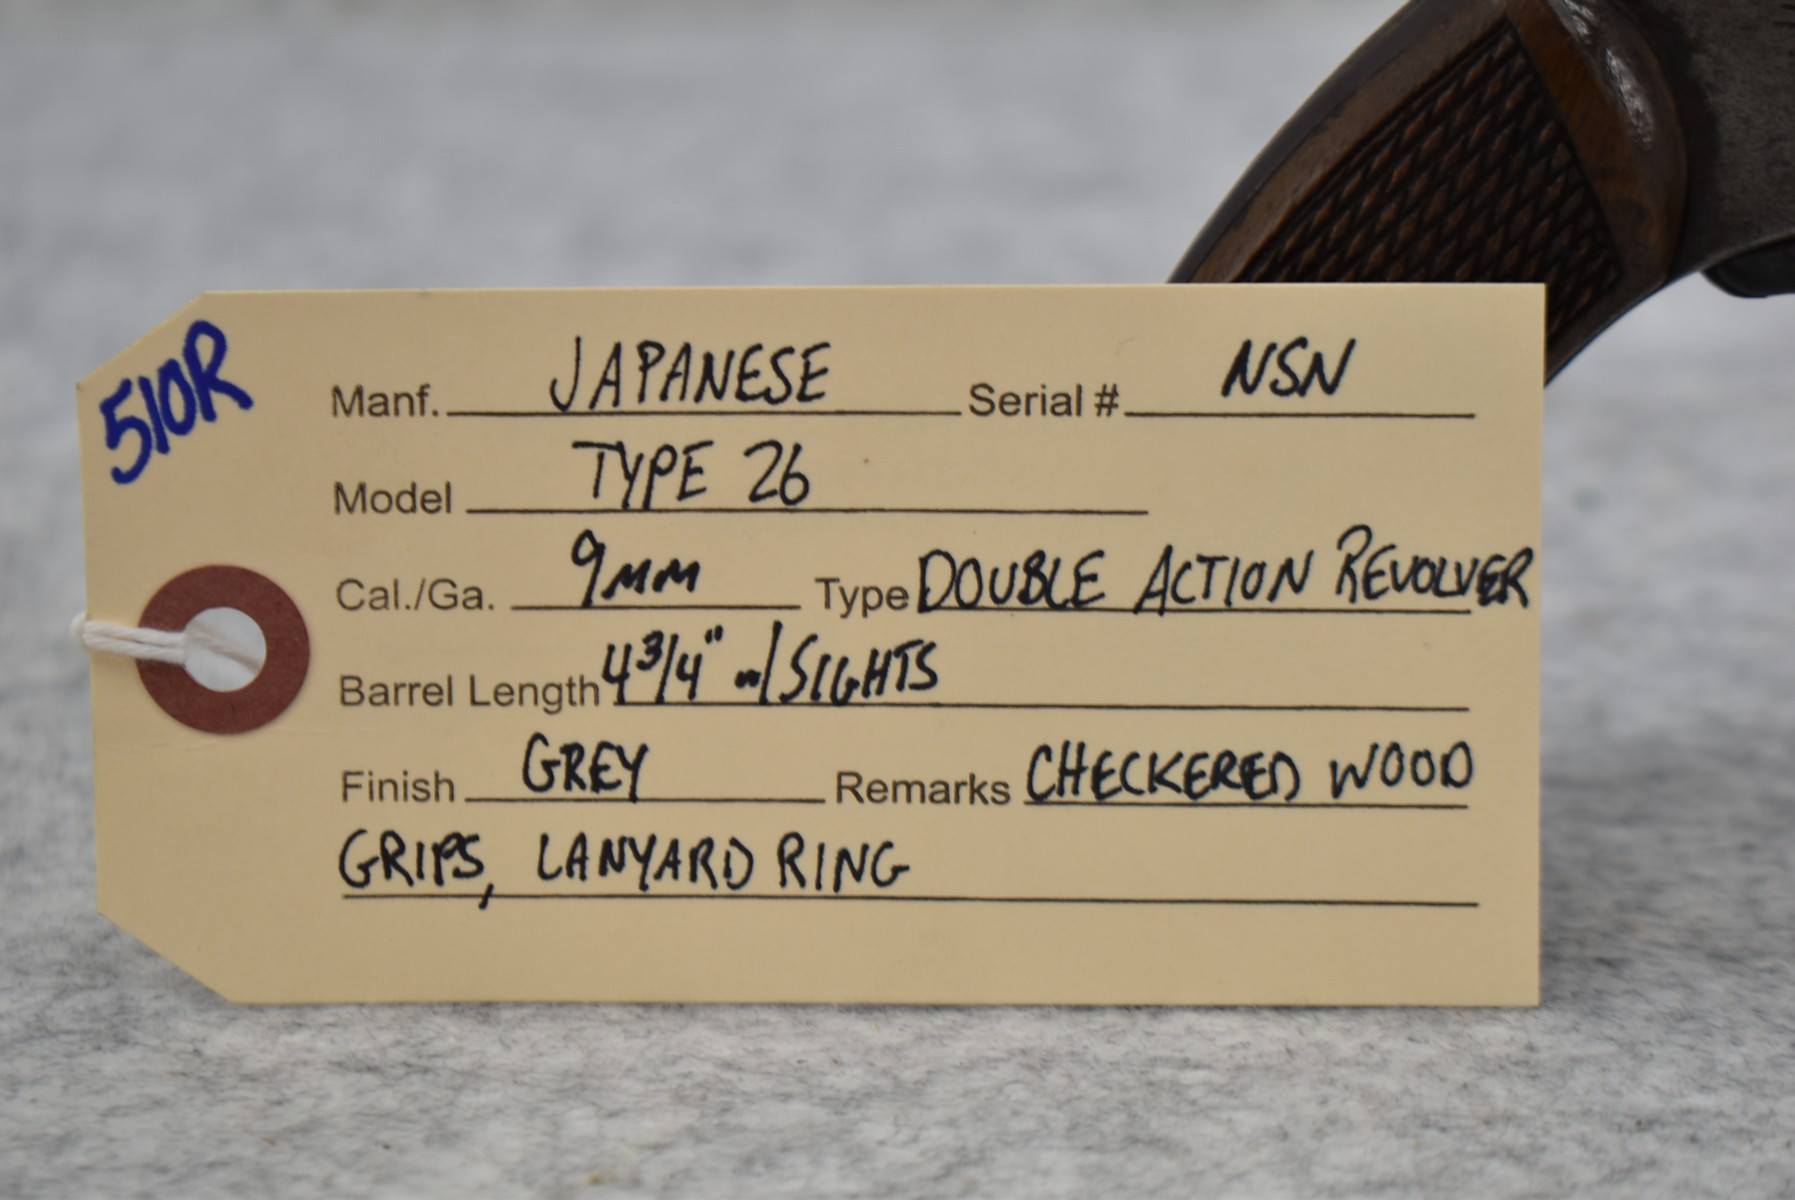 510R
Manf. JAPANESE Serial # NSN
Model TYPE 26
Cal./Ga. 9MM Type DOUBLE ACTION REVOLVER
Barrel Length 4 3/4" w/SIGHTS
Finish GREY Remarks CHECKERED WOOD
GRIPS, LANYARD RING